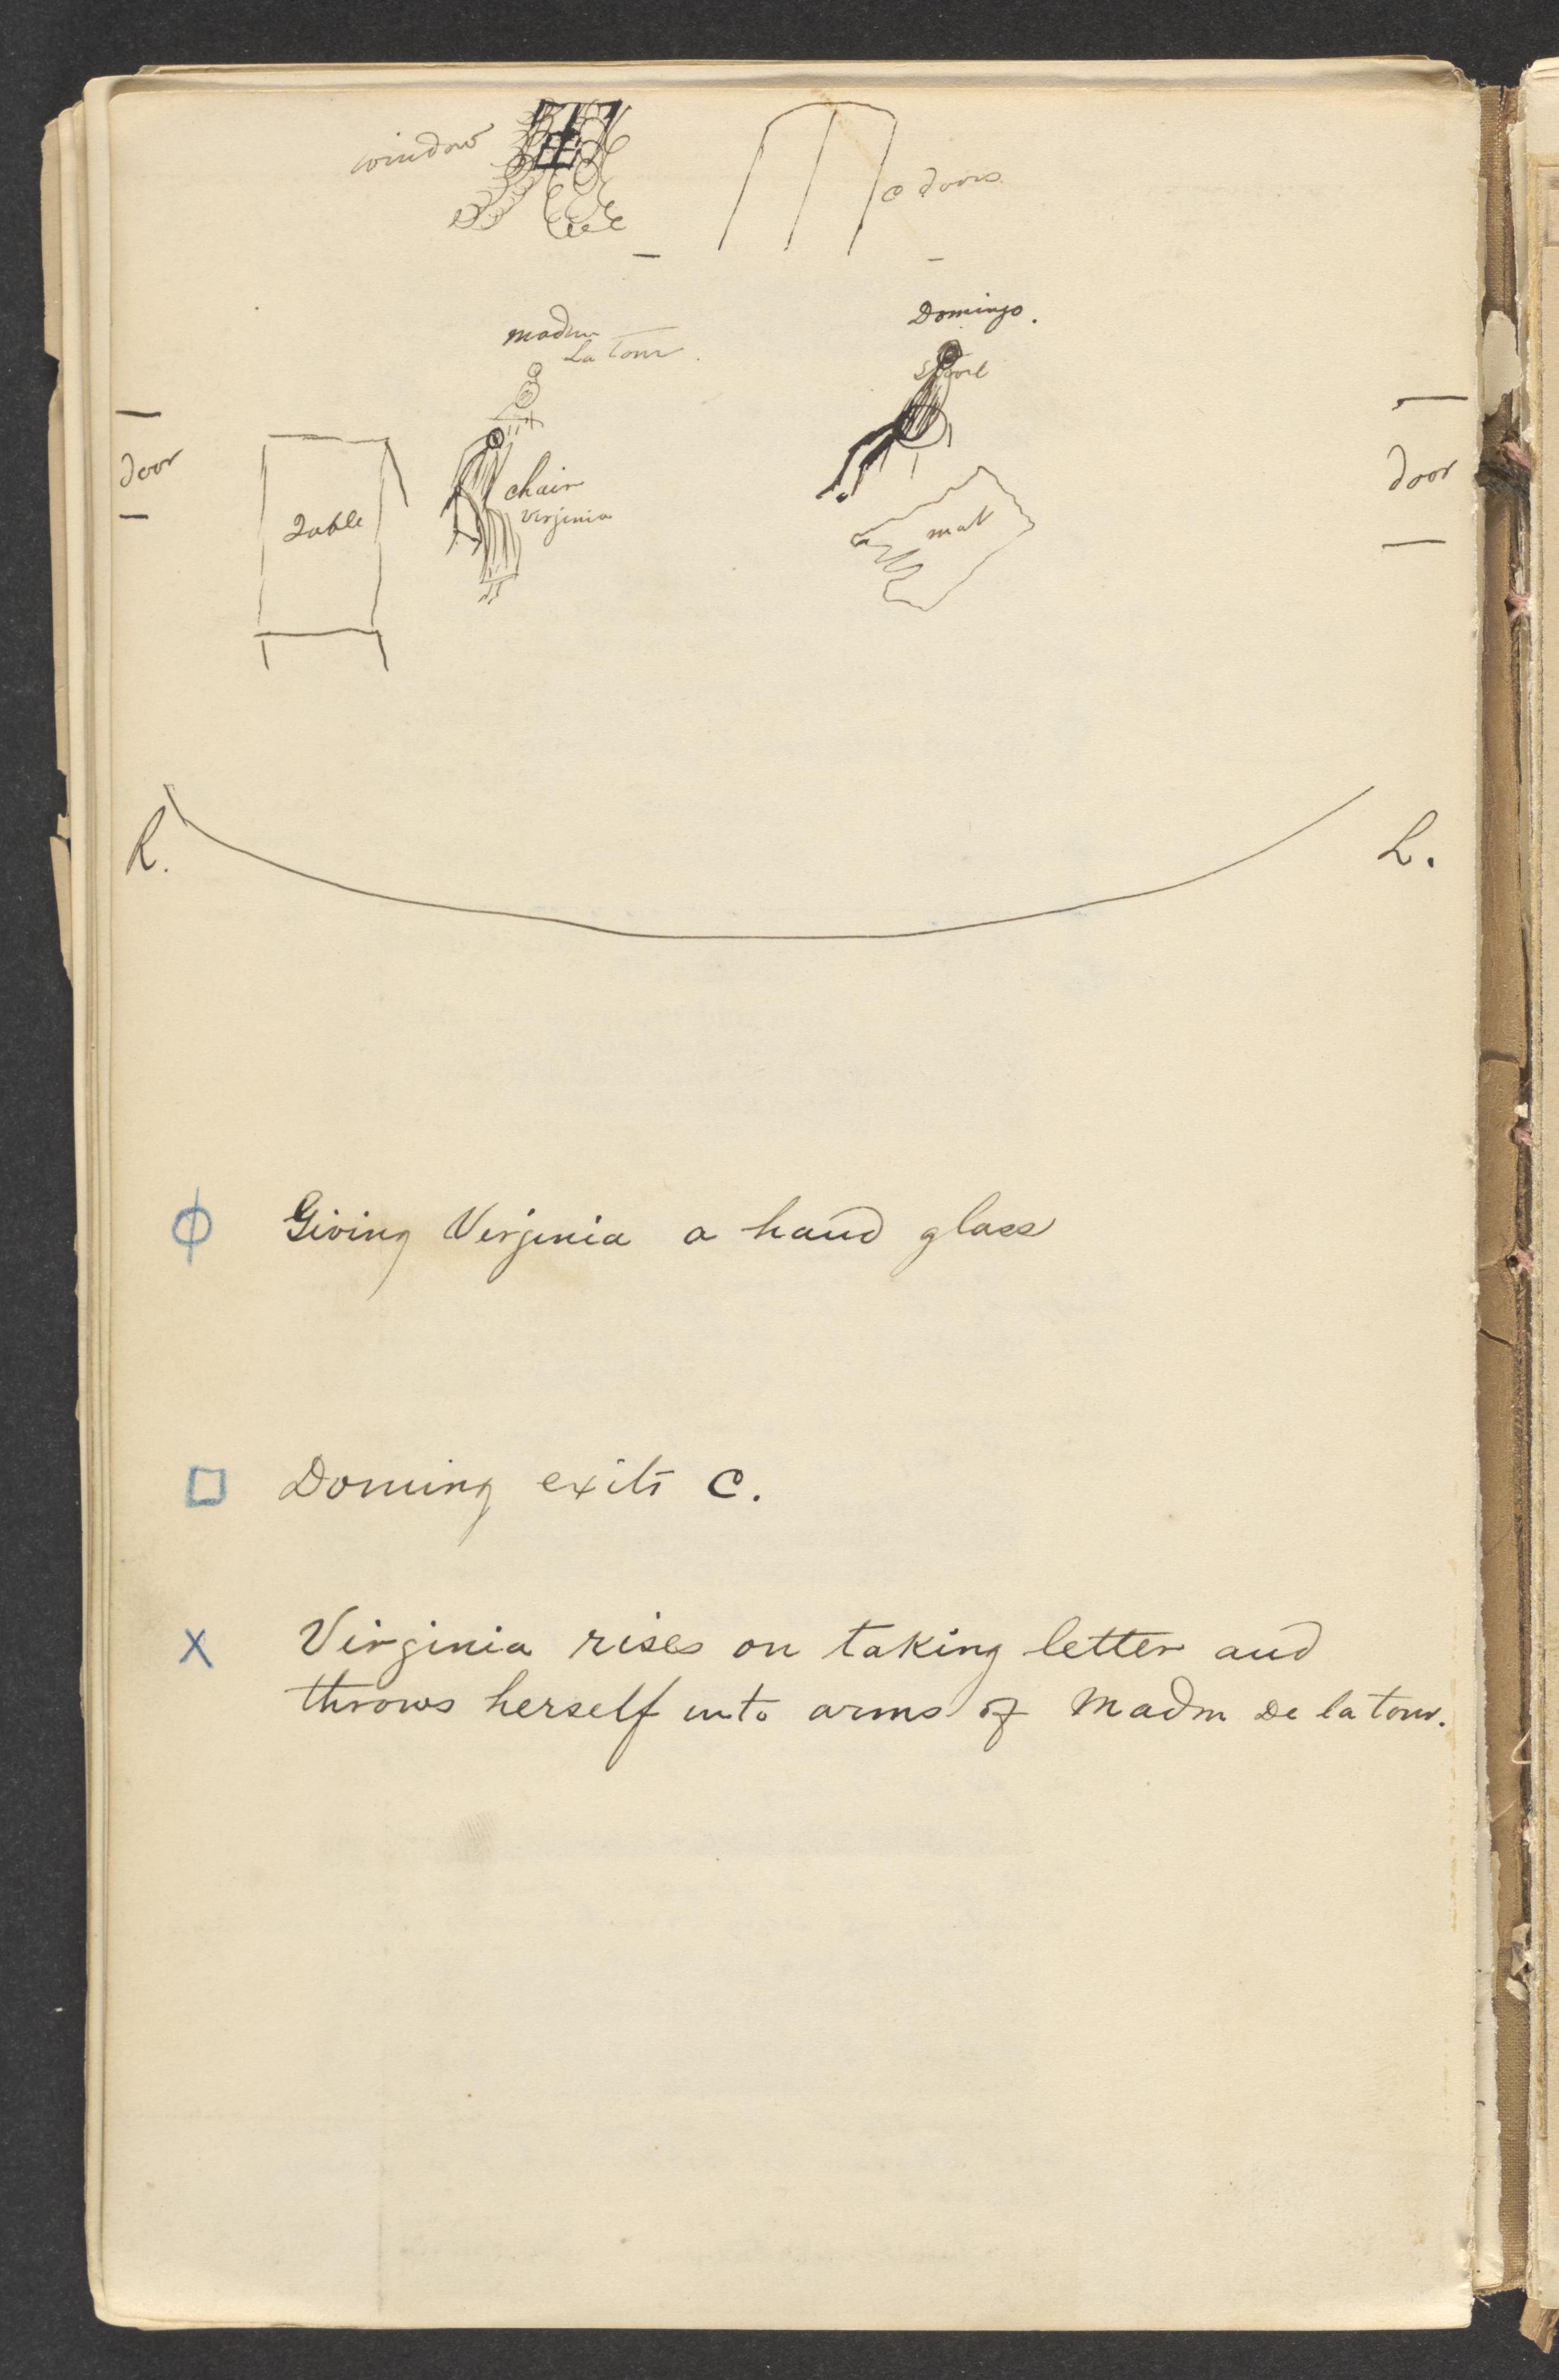 window
c doors
Domingo.
Madm
La Tour.
Stool
door
door
chair
Virginia
Table
mat
R.
L.
ϕ Giving Virginia a hand glass
□ Doming exits C.
X Virginia rises on taking letter and
throws herself into arms of Madm De la tour.